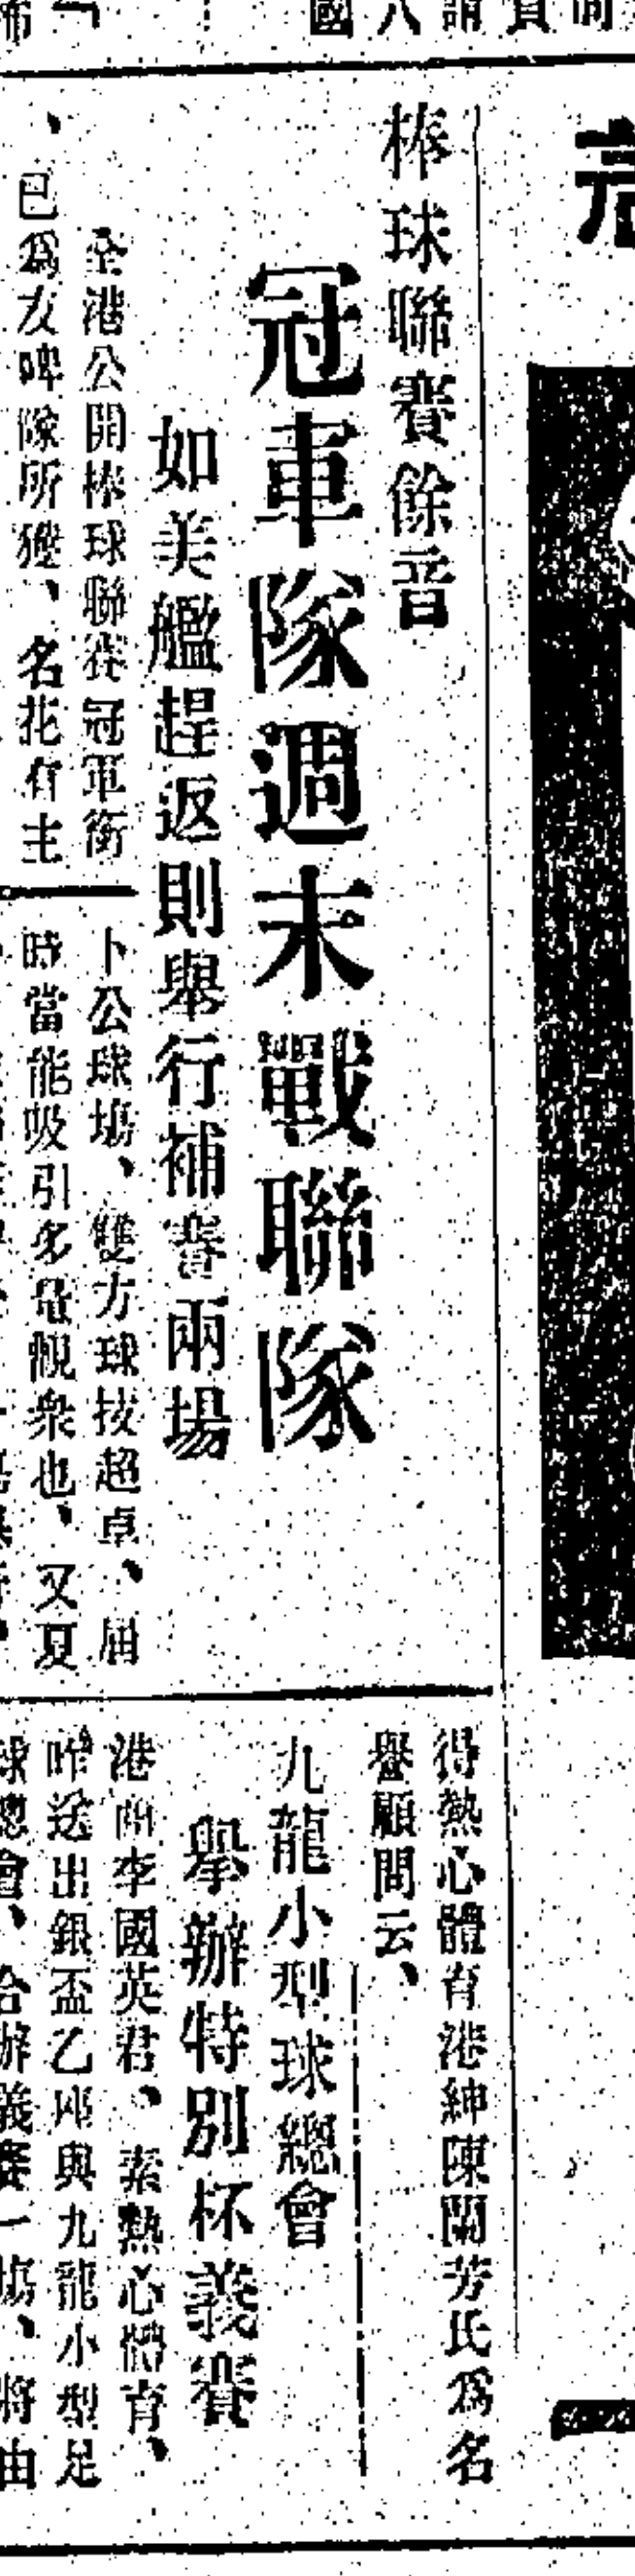 棒球聯賽餘音
冠軍隊週末戰聯隊
如美艦趕返則舉行補賽兩場
全港公開棒球聯賽冠軍銜
、已為友啤隊所獲、名花有主
卜公球塲、雙方球技超卓、屆
時當能吸引多量觀衆也、又夏
得熱心體育港紳陳蘭芳氏為名
譽顧問云、
九龍小型球總會
舉辦特別杯義賽
港商李國英君、素熱心體育、
昨送出銀盃乙座與九龍小型足
球總會、合辦義賽一塲、將由